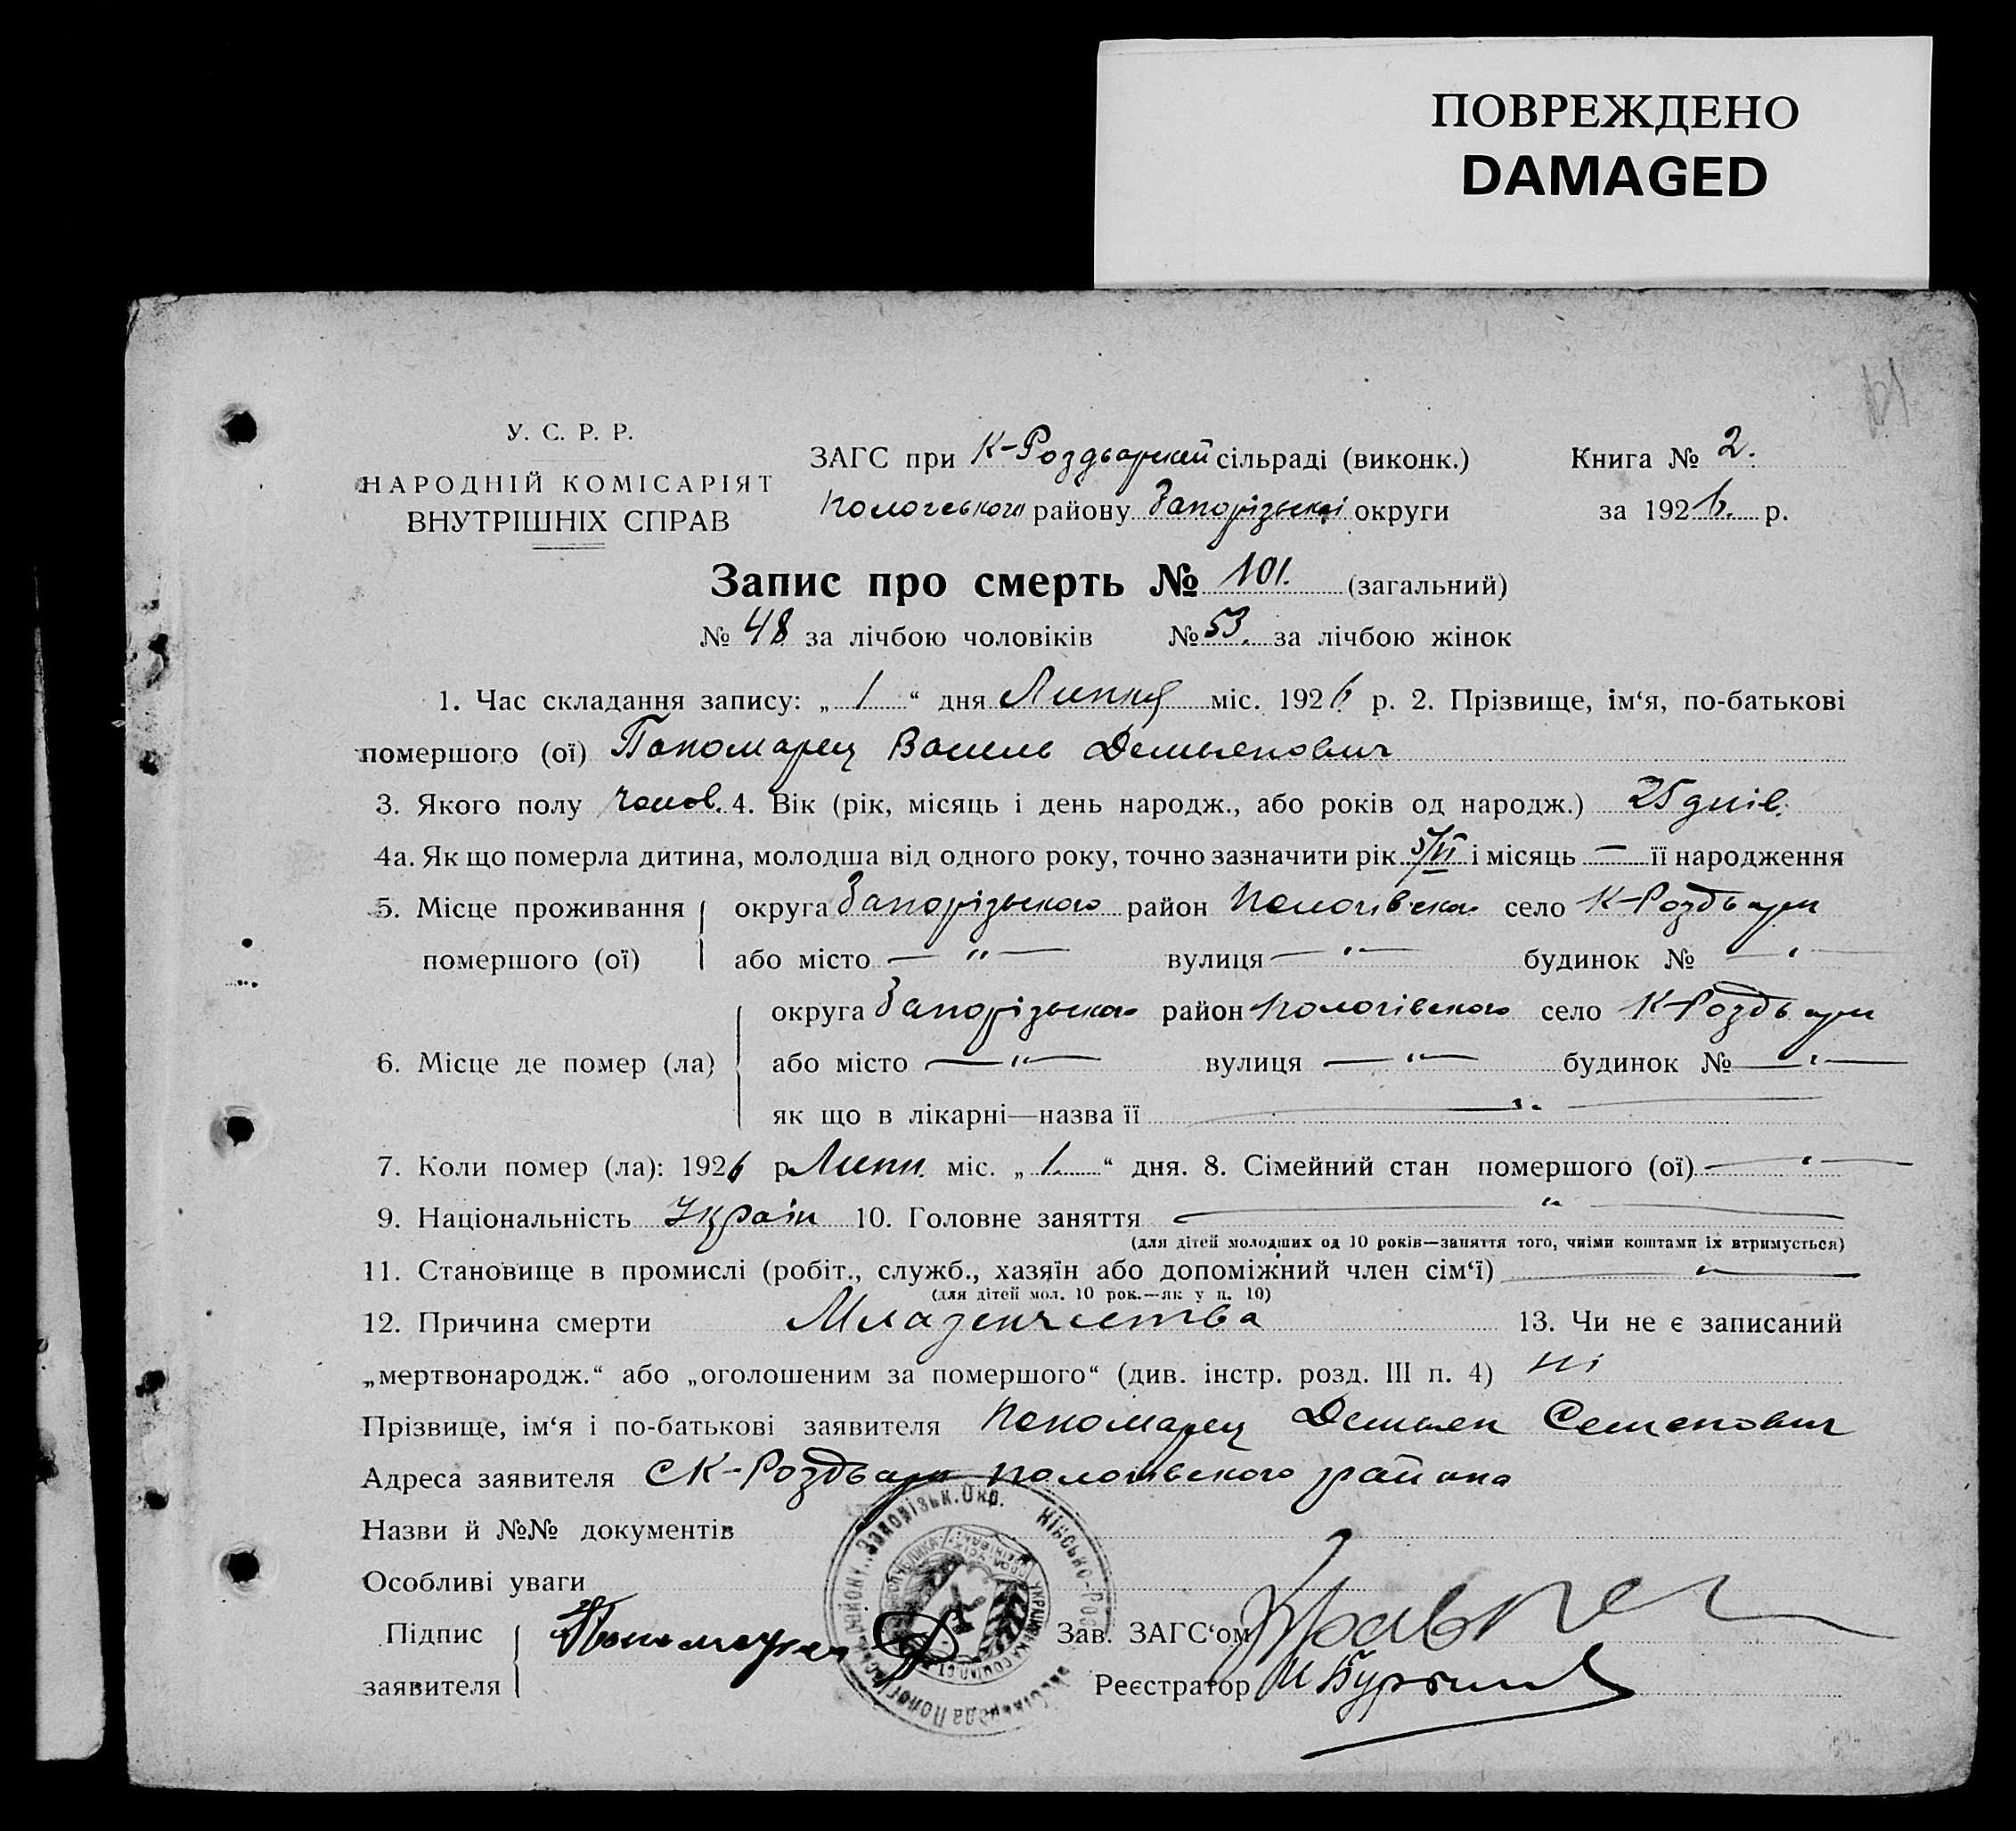 ПОВРЕЖДЕНО
DAMAGED
У. С. Р. Р.
НАРОДНІЙ КОМІСАРІЯТ
ВНУТРІШНІХ СПРАВ
ЗАГС при К-Роздорській сільраді (виконк.)
Книга № 2.
Пологського району Запорізької округи
за 1926. р.
Запис про смерть № 101. (загальний)
№ 48 за лічбою чоловіків № 53. за лічбою жінок
1. Час складання запису: „ 1 “ дня Липня міс. 1926 р. 2. Прізвище, ім‘я, по-батькові
помершого (ої) Пономарец Василь Демьянович
3. Якого полу чолов. 4. Вік (рік, місяць і день народж., або років од народж.) 25 днів.
4а. Як що померла дитина, молодша від одного року, точно зазначити рік 5/VI і місяць — її народження
5. Місце проживання округа Запорізького район Пологівского село К-Роздори
помершого (ої) або місто — „ — вулиця — „ — будинок № — „ —
округа Запорізького район Пологівского село К-Роздори
6. Місце де помер (ла) або місто — „ — вулиця — „ — будинок № — „ —
як що в лікарні—назва її — „ —
7. Коли помер (ла): 1926 р. Липн. міс. „ 1. “ дня. 8. Сімейний стан помершого (ої) — „ —
9. Національність Україн 10. Головне заняття — „ —
(для дітей молодших од 10 років—заняття того, чиїми коштами їх втримується)
11. Становище в промислі (робіт., служб., хазяїн або допоміжний член сім‘ї) — „ —
(для дітей мол. 10 рок.—як у п. 10)
12. Причина смерти Младенчества 13. Чи не є записаний
„мертвонародж.“ або „оголошеним за помершого“ (див. інстр. розд. III п. 4) ні
Прізвище, ім‘я і по-батькові заявителя Пономарец Демьян Семенович
Адреса заявителя С К-Роздори Пологівского району
Назви й №№ документів
Особливі уваги
Підпис
заявителя
Зав. ЗАГС‘ом
Реєстратор